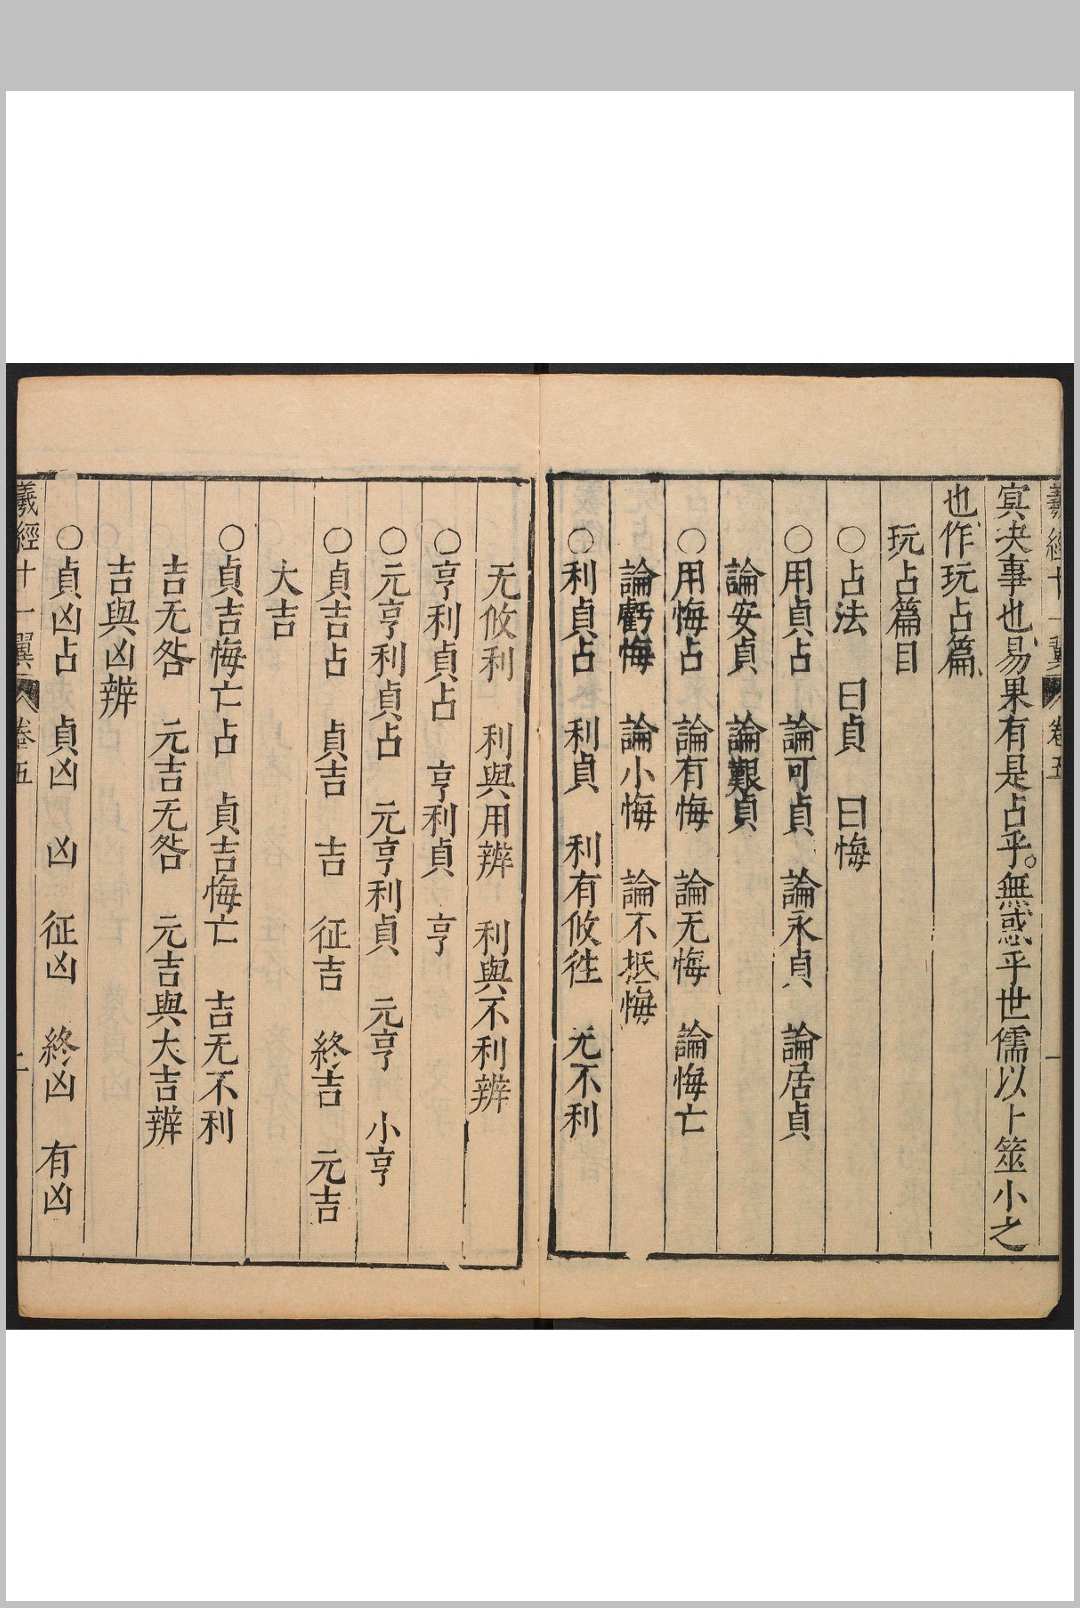 羲經十一翼 卷五 一
㝠决事也易果有是占乎。無惑乎世儒以卜筮小之
也作玩占篇
玩占篇目
○占法 曰貞 曰悔
○用貞占 論可貞 論永貞 論居貞
論安貞 論艱貞
○用悔占 論有悔 論无悔 論悔亡
論虧悔 論小悔 論不抵悔
○利貞占 利貞 利有攸徃 无不利
无攸利 利與用辨 利與不利辨
○亨利貞占 亨利貞 亨
○元亨利貞占 元亨利貞 元亨 小亨
○貞吉占 貞吉 吉 征吉 終吉 元吉
大吉
○貞吉悔亡占 貞吉悔亡 吉无不利
吉无咎 元吉无咎 元吉與大吉辨
吉與凶辨
○貞凶占 貞凶 凶 征凶 終凶 有凶
羲經十一翼 卷五